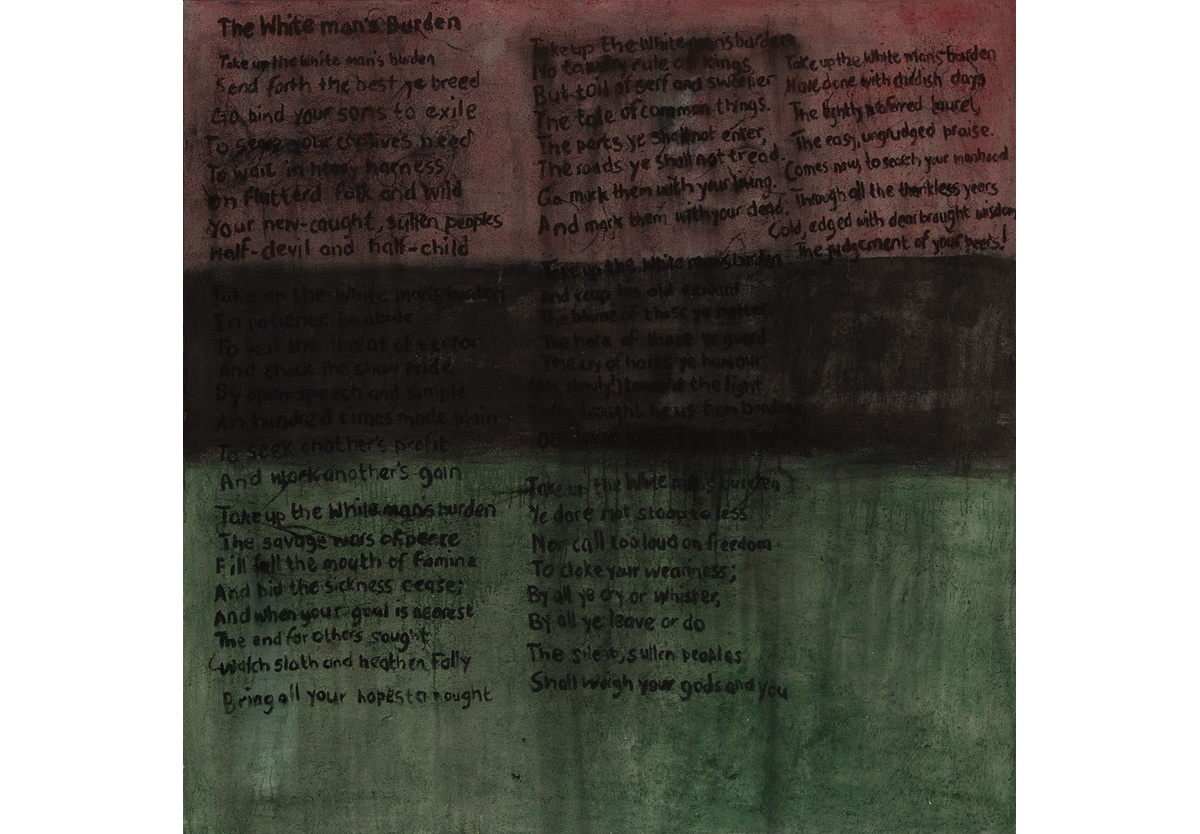 The White man's Burden
Take up the White man's burden
Send forth the best ye breed
Go bind your sons to exile
To serve your captives need
To wait in heavy harness
On fluttered folk and wild
Your new-caught, sullen peoples
Half-devil and half-child
Take up the White man's burden
In patience to abide
To veil the threat of terror
And check the show pride
By open speech and simple
An hundred times made plain
To seek another's profit
And work another's gain
Take up the White man's burden
The savage wars of peace
Fill full the mouth of Famine
And bid the sickness cease;
And when your goal is nearest
The end for others sought
Watch sloth and heathen Folly
Bring all your hopes to nought
Take up the White man's burden
No tawdry rule of kings
But toil of serf and sweeper
The tale of common things.
The ports ye shall not enter,
The roads ye shall not tread.
Go mark them with your living.
And mark them with your dead.
Take up the White man's burden
And reap his old reward
The blame of those ye better
The hate of those ye guard
The cry of hosts ye humour
(Ah, slowly!) toward the light
brought he us from bondage,
Take up the White man's burden
Ye dare not stoop to less
Nor call too loud on freedom
To cloke your weariness;
By all ye cry or whisper,
By all ye leave or do
The silent, sullen peoples
Shall weigh your gods and you
Take up the White man's burden
Have done with childish days
The lightly proffered laurel,
The easy, ungrudged praise.
Comes now, to search your manhood
Through all the thankless years
Cold, edged with dear bought wisdom
The judgement of your peers!